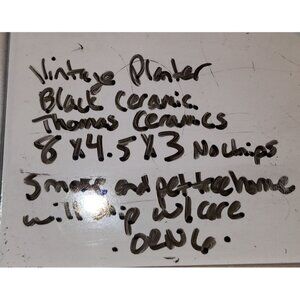 Vintage Planter
Black Ceramic
Thomas Ceramics
8 x 4.5 x 3 No chips
Smoke and pet free home
will ship w/ care